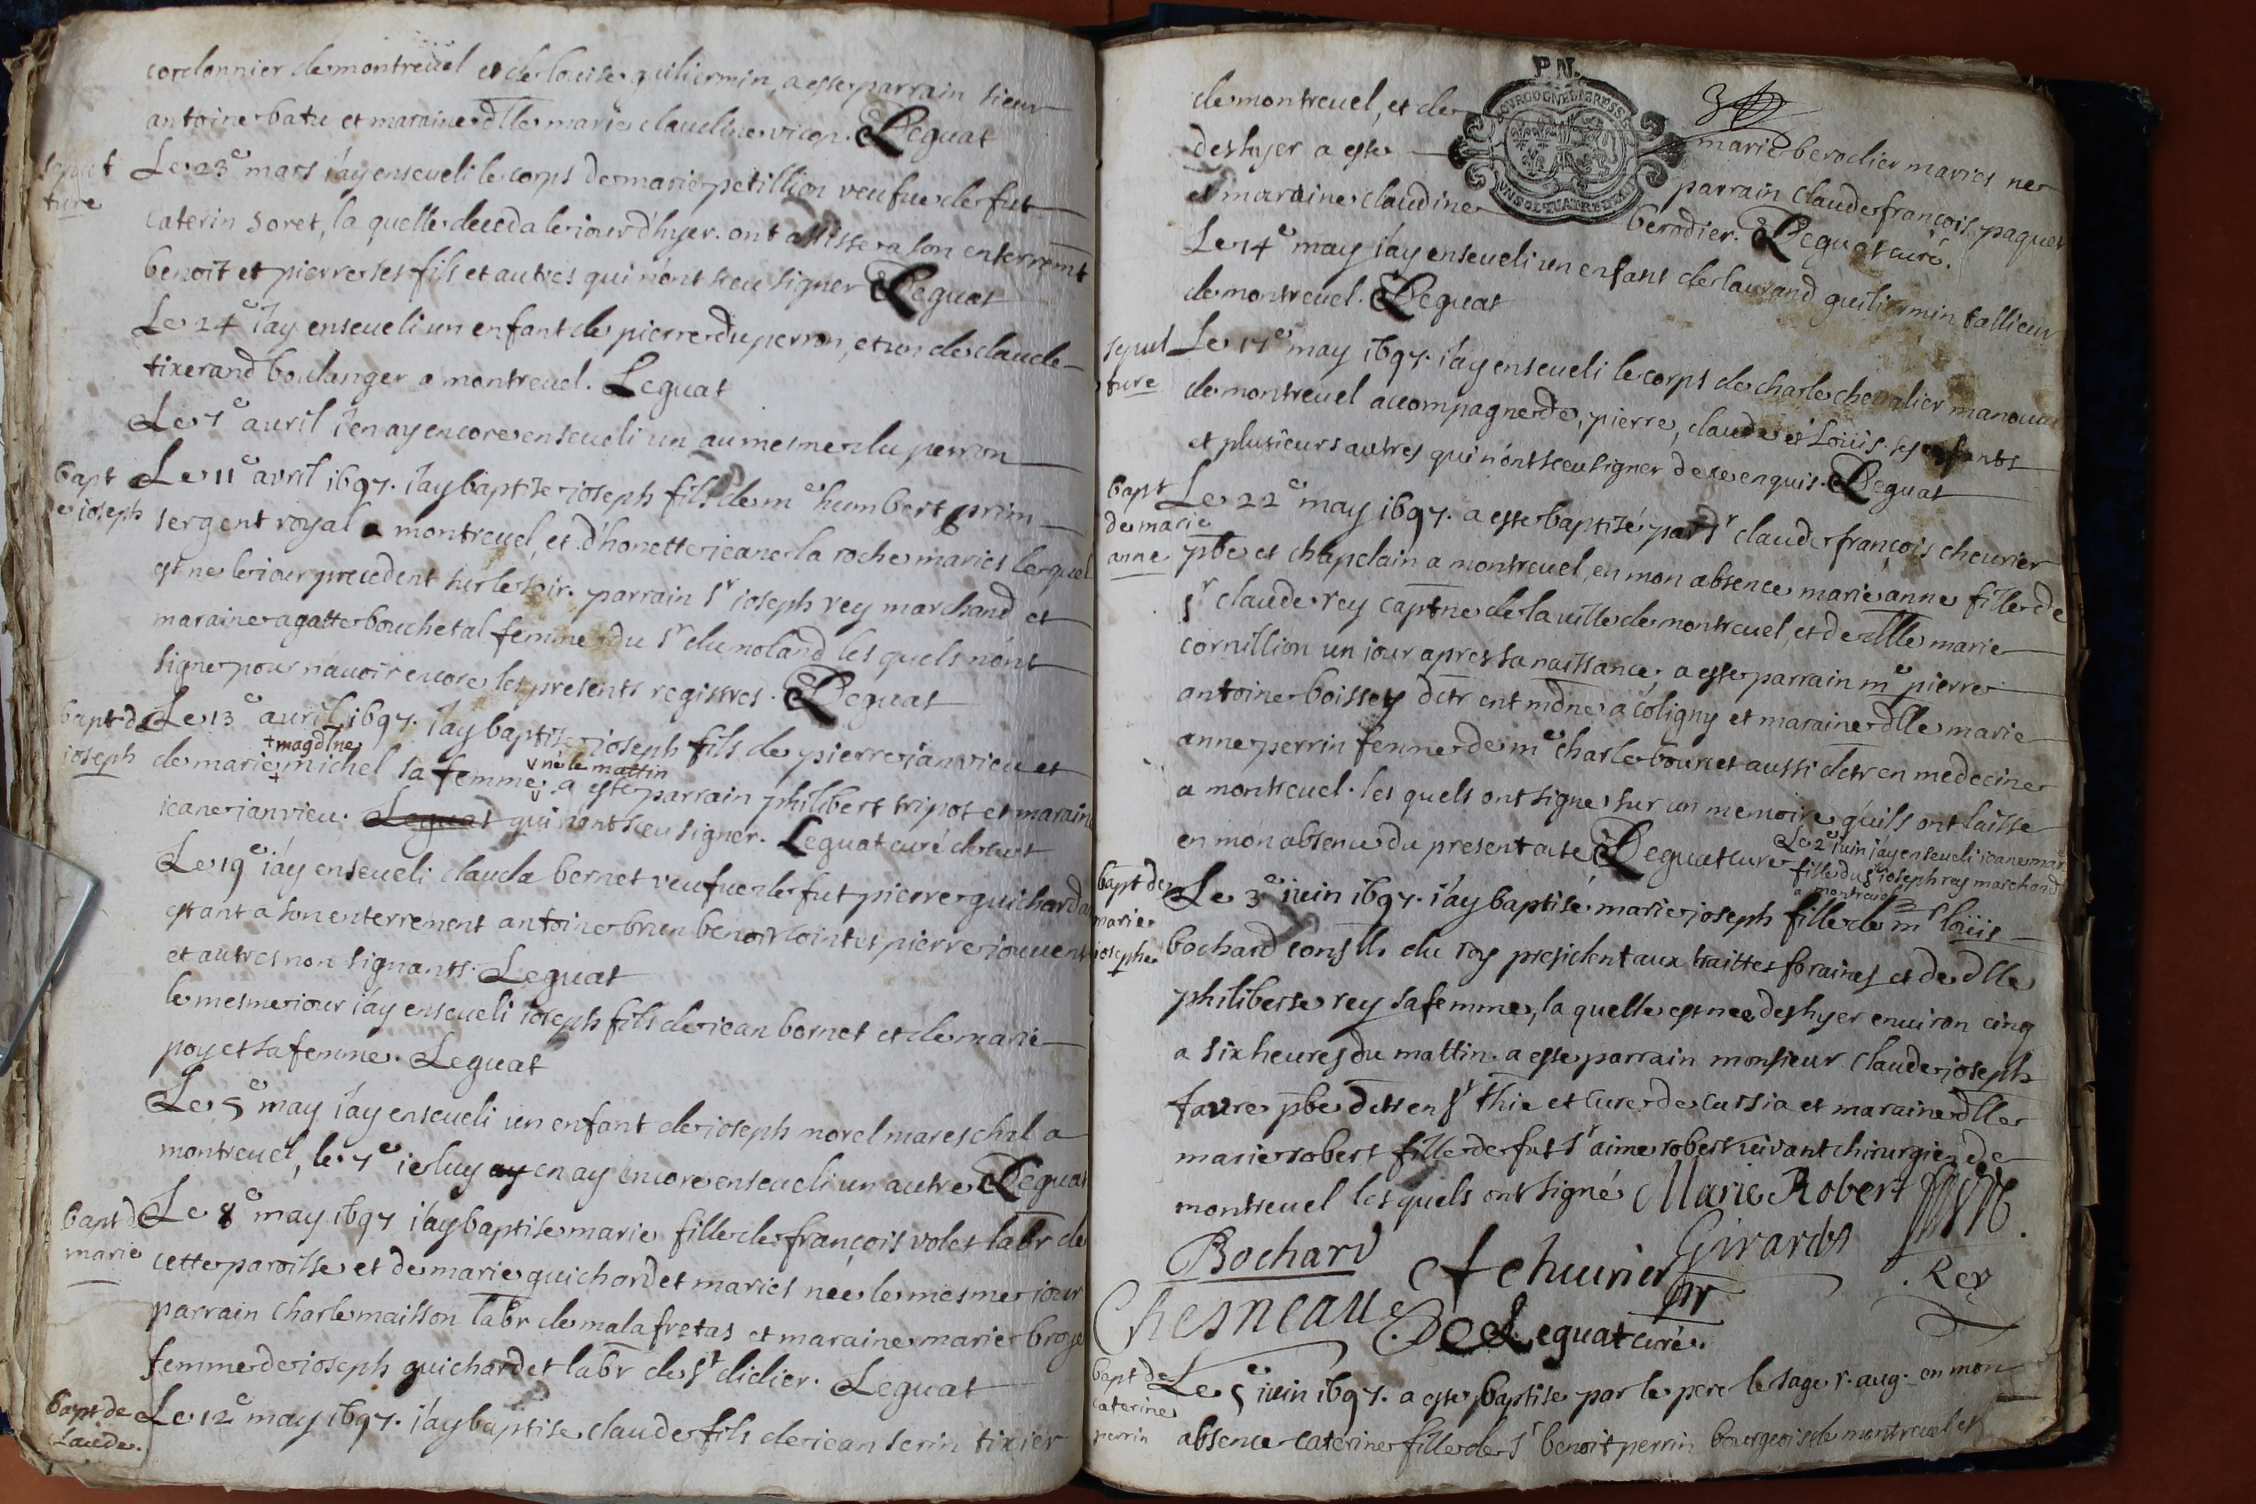 cordonnier de montrevel et de louise guiliermin, a esté parrain sieur
antoine batu et maraine dlle marie claudine Leguat
sepul
ture
Le 23e mars i'ay enseveli le corps de marie petillion veufue de fut
caterin soret, la quelle deceda le iour d'hyer. ont assisté a son enterremt
benoit et pierre ses fils et autres qui n'ont sceu signer Leguat
Le 24e i'ay enseveli un enfant de pierre du perron, et un de claude
tixerand boulanger a montrevel. Leguat
Le 7e avril i'en ay encore enseveli un au mesme du perron
bapt
e ioseph
Le 11e avril 1697. i'ay baptisé ioseph fils de me humbert prim
sergent royal a montrevel, et d'honette ieane la roche mariés lequel
est né le iour precedent sur le soir. parrain sr ioseph rey marchand et
maraine agatte bouchetal femme du sr du noland les quels n'ont
signé pour n'avoir encore les presents registres. Leguat
bapt de
ioseph
Le 13e avril 1697. i'ay baptisé ioseph fils de pierre ianvieu et
+ magdlne
de marie michel sa femme. a esté parrain philibert tripos et maraine
né le mattin
ieane ianvieu. Leguat qui n'ont sceu signer. Leguat curé
Le 19e i'ay enseveli clauda bernet veufue de fut pierre guichard
estant a son enterrement antoine brun benoit cointet pierre iouvent
et autres non signants. Leguat
le mesme iour i'ay enseveli ioseph fils de iean bornet et de marie
poyet sa femme. Leguat
Le 5e may i'ay enseveli un enfant de ioseph morel mareschal a
montrevel, le 7e ie luy ay en ay encore enseveli un autre Leguat
bapt de
marie
Le 8e may 1697 i'ay baptisé marie fille de françois volet labr de
cette paroisse et de marie guichardet mariés née le mesme iour
parrain charle maisson labr de malafretas et maraine marie broye
femme de ioseph guichardet labr de st didier. Leguat
bapt de
claude.
Le 12e may 1697. i'ay baptisé claude fils de iean serin tixier
P.N.
BOURGOGNE BRESSE
UN SOL QUATRE DEN
de montrevel, et de marie berodier mariés né
deshyer a esté parrain claude françois paquet
et maraine claudine berodier. Leguat curé.
Le 14e may i'ay enseveli un enfant de laurand guiliermin tallieur
de montrevel. Leguat
sepul
ture
Le 17e may 1697. i'ay enseveli le corps de charle chevalier manouv
de montrevel accompagné de, pierre, claude et Loüis ses enfants
et plusieurs autres qui n'ont sceu signer de ce enquis. Leguat
bapt
de marie
anne
Le 22e may 1697. a esté baptisé par sr claude françois chevrier
pbre et chapelain a montrevel, en mon absence marie anne fille de
sr claude rey captne de la ville de montrevel et de dlle marie
cornillion un iour apres sa naissance; a esté parrain me pierre
antoine boissey dctr en mdne a coligny et maraine dlle marie
anne perrin femme de me charle bouvet aussi dctr en medecine
a montrevel. les quels ont signé sur un memoire qu'ils ont laissé
en mon absence du present acte Leguat curé
Le 2e iuin i'ay enseveli ieane marie
fille du sr ioseph rey marchand
a montrevel
bapt de
marie
iosephe
Le 3e iuin 1697. i'ay baptisé marie joseph fille de mr Loüis
bochard consllr du roy president aux traittes foraines et de dlle
philiberte rey sa femme, la quelle est née deshyer environ cinq
a six heures du mattin. a esté parrain monsieur claude joseph
favre pbre dctr en ste thie et curé de cussia et maraine dlle
marie robert fille de fut sr aimé robert vivant chirurgien de
montrevel lesquels ont signé Marie Robert Favre
Bochard Chevrier Girardot Rey
Chesneau Leguat curé.
bapt de
caterine
perrin
Le 5e iuin 1697. a esté baptisé par le pere le sage r. aug. en mon
absence caterine fille de sr benoit perrin bourgeois de montrevel et